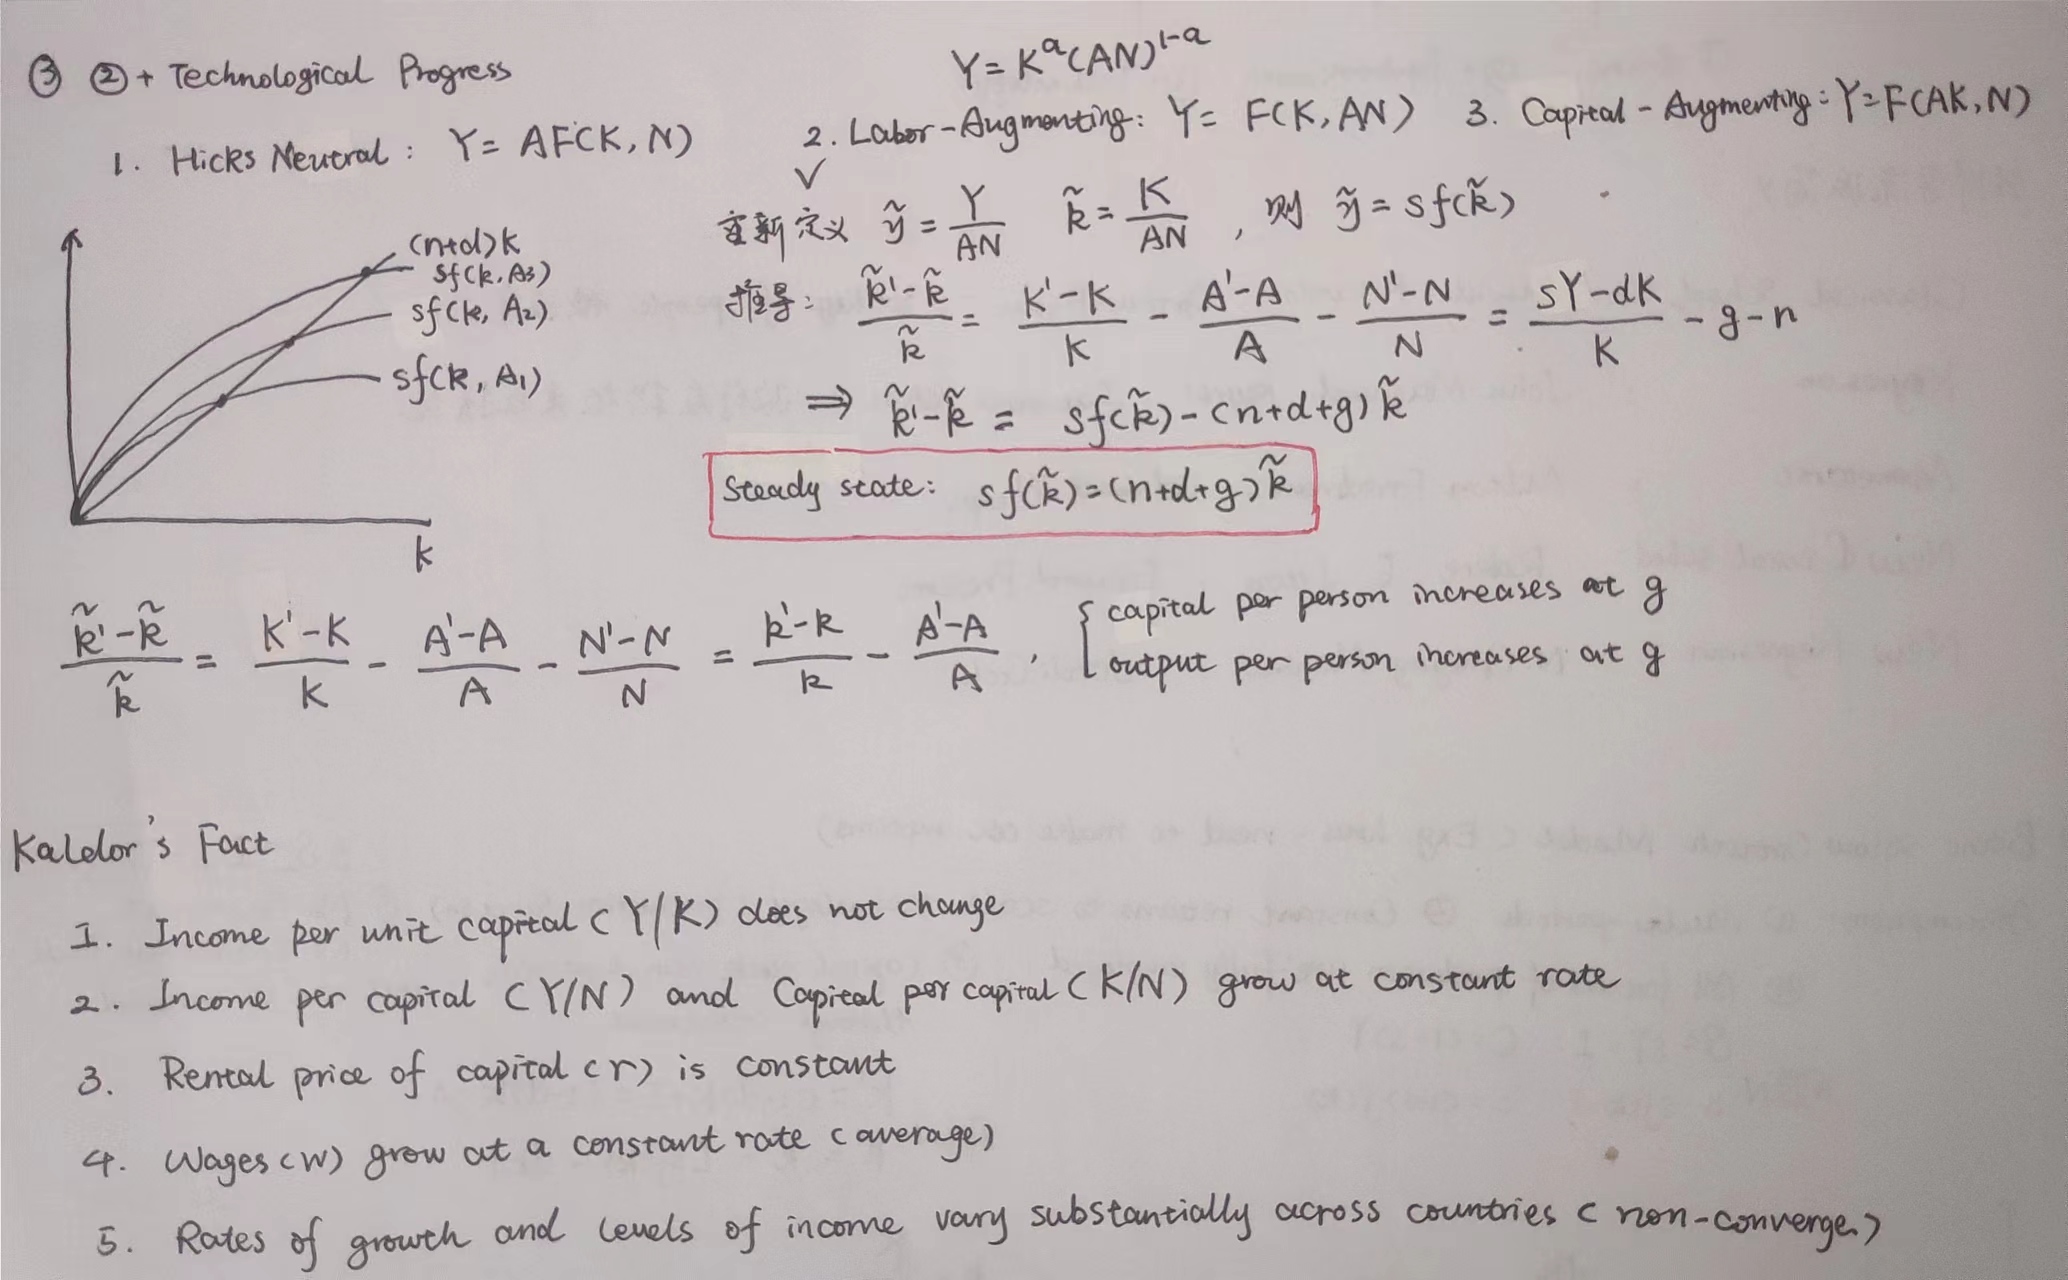 ③ ②+ Technological Progress
Y=K^a(AN)^{1-a}
1. Hicks Neutral: Y= AF(K, N)
2. Labor-Augmenting: Y= F(K, AN)
3. Capital-Augmenting: Y=F(AK, N)
✓
重新定义 ỹ = Y/AN k̃ = K/AN , 则 ỹ = sf(k̃)
推导: (k̃'-k̃)/k̃ = (K'-K)/K - (A'-A)/A - (N'-N)/N = (sY-dK)/K - g-n
⇒ k̃'-k̃ = sf(k̃)-(n+d+g)k̃
Steady state: sf(k̃)=(n+d+g)k̃
(n+d)k
sf(k, A3)
sf(k, A2)
sf(k, A1)
k
(k̃'-k̃)/k̃ = (K'-K)/K - (A'-A)/A - (N'-N)/N = (k'-k)/k - (A'-A)/A ,
{ capital per person increases at g
output per person increases at g
Kaldor's Fact
1. Income per unit capital (Y/K) does not change
2. Income per capital (Y/N) and Capital per capital (K/N) grow at constant rate
3. Rental price of capital (r) is constant
4. Wages (w) grow at a constant rate (average)
5. Rates of growth and levels of income vary substantially across countries (non-converge)